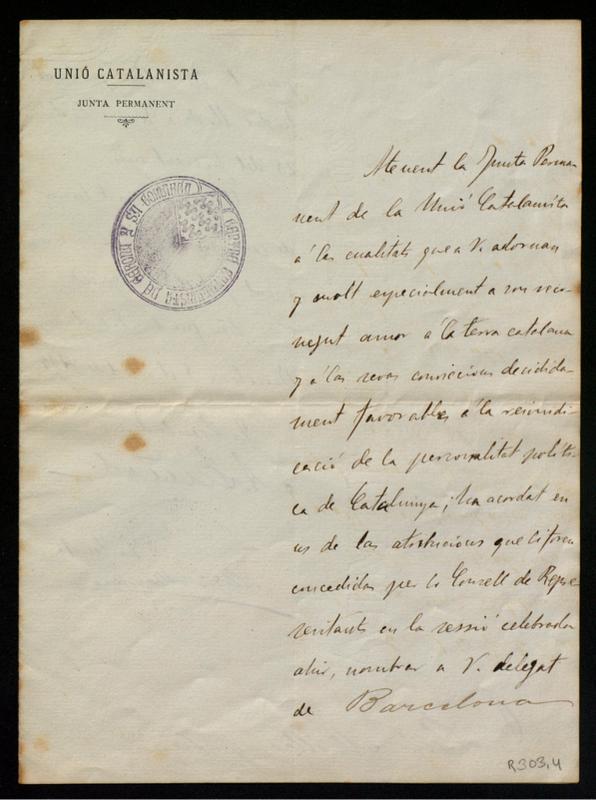 UNIÓ CATALANISTA
JUNTA PERMANENT
AGRUPACIÓ CATALANISTA DE GERONA Y SA COMARCA
Atenent la Junta Perma
nent de la Unió Catalanista
á las cualitats que a V. adornan
y molt especialment a son reco-
negut amor á la terra catalana
y á las sevas conviccions decidida-
ment favorables á la reivindi-
cació de la personalitat políti-
ca de Catalunya; ha acordat en
us de las atribucions que li foren
concedidas per lo Consell de Repre-
sentants en la sessió celebrada
ahir, nombrar a V. delegat
de Barcelona
R303,4